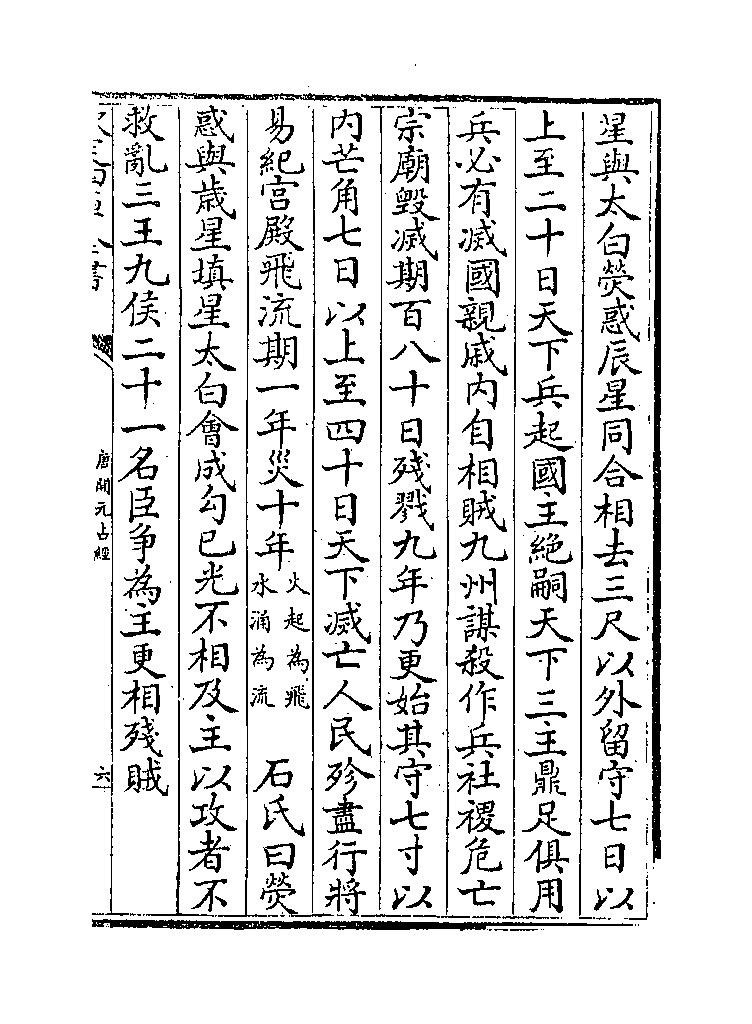 星與太白熒惑辰星同合相去三尺以外留守七日以
上至二十日天下兵起國主絶嗣天下三主鼎足俱用
兵必有滅國親戚内自相賊九州謀殺作兵社稷危亡
宗廟毀滅期百八十日殘戮九年乃更始其守七寸以
内芒角七日以上至四十日天下滅亡人民殄盡行將
易紀宫殿飛流期一年災十年火起為飛水涌為流 石氏曰熒
惑與歳星填星太白會成勾已光不相及主以攻者不
救亂三王九侯二十一名臣争為主更相殘賊
唐開元占經
六